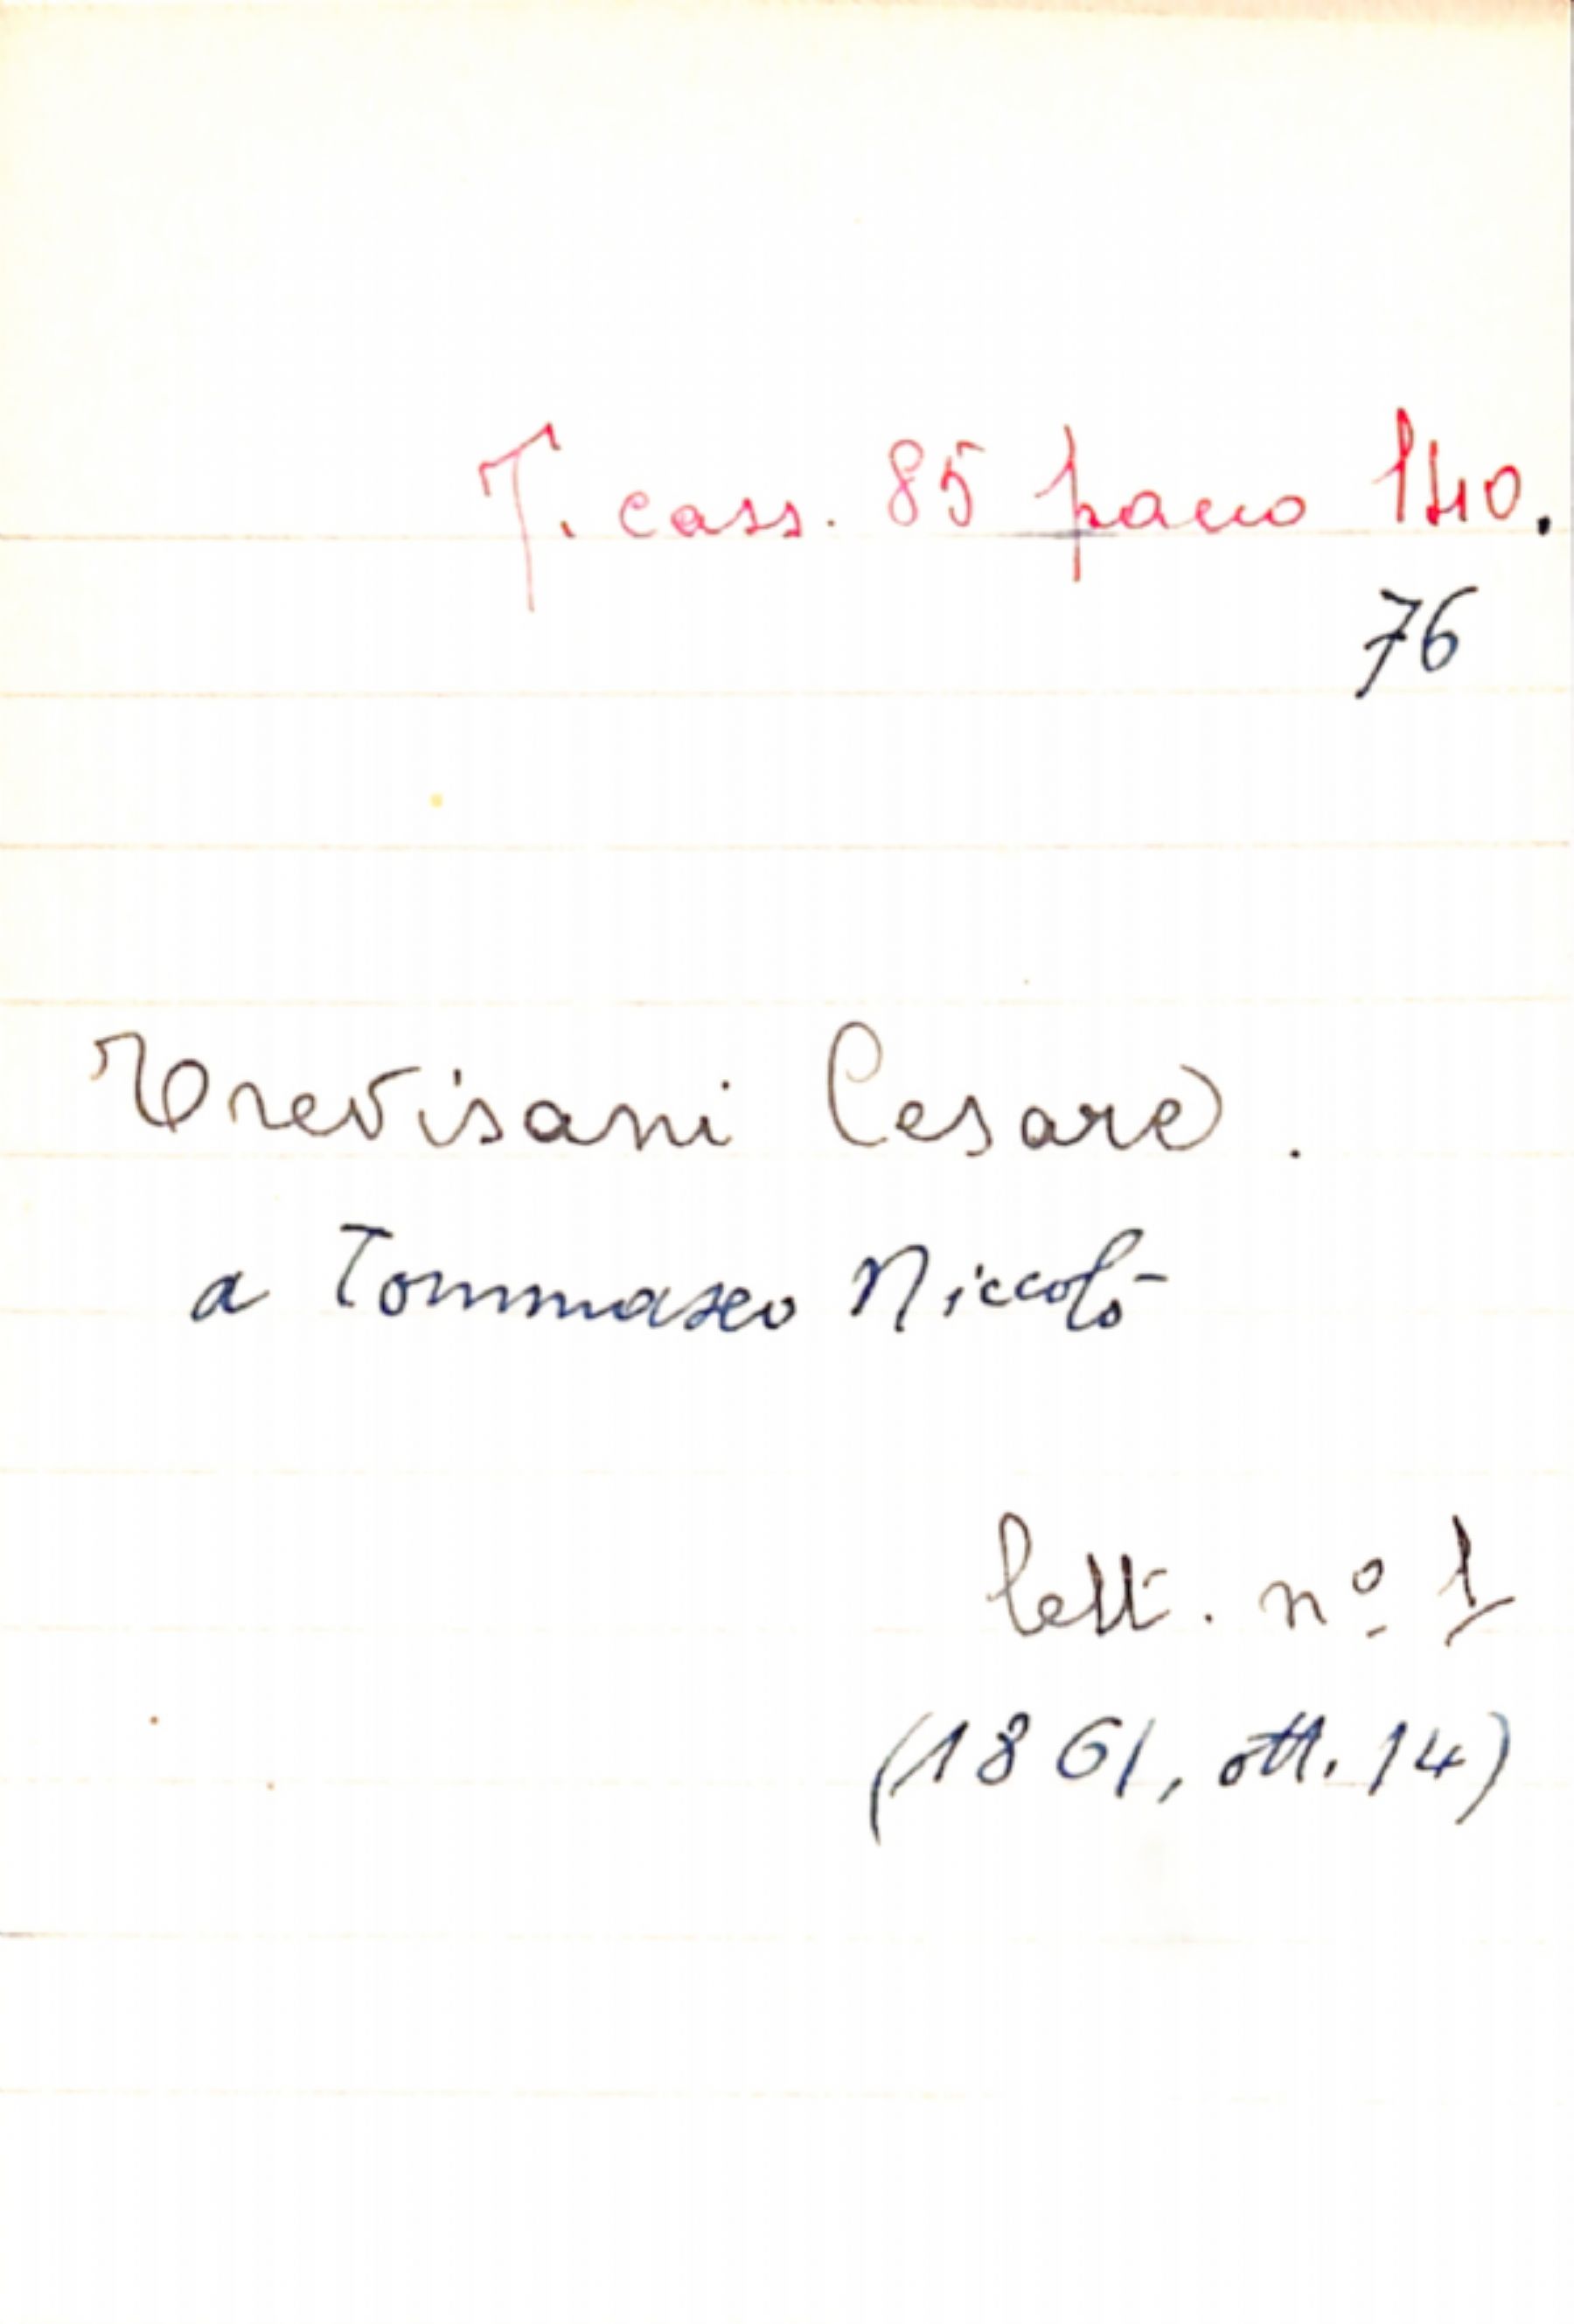 T. cass. 85 pacco 140.
76
Trevisani Cesare.
a Tommaseo Niccolò
lett. nº 1
(1861, ott. 14)